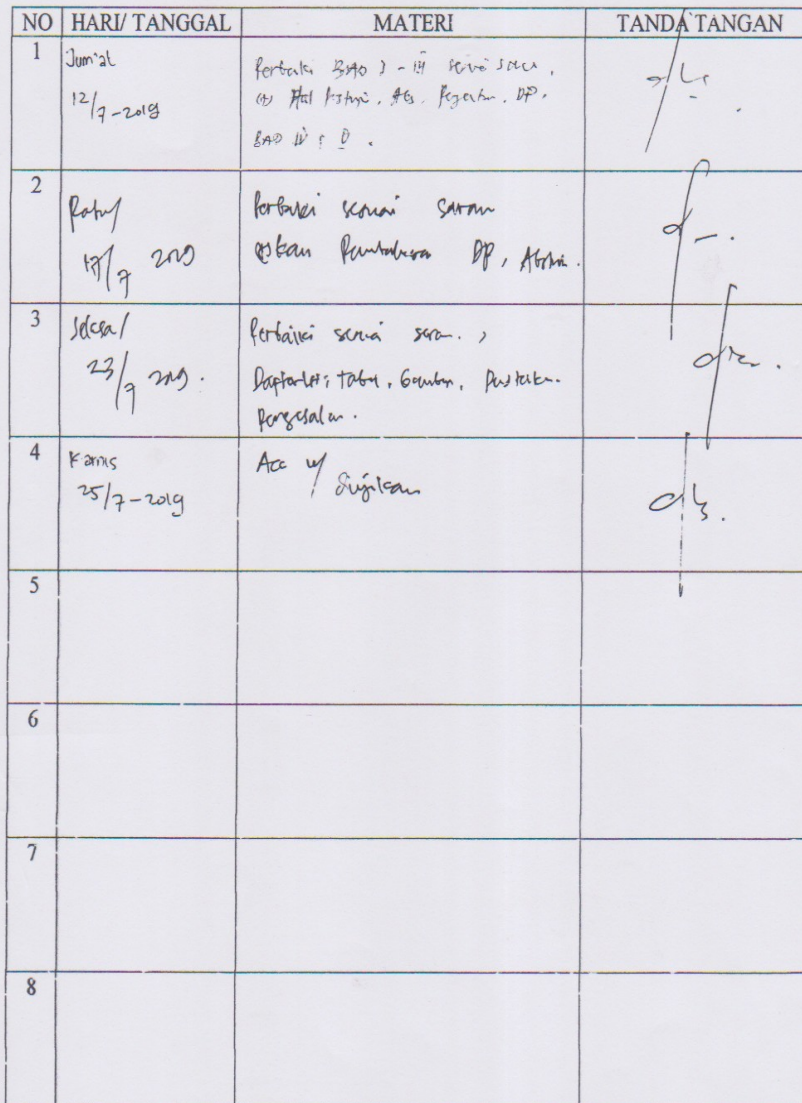 NO HARI/ TANGGAL MATERI TANDA TANGAN
1 Jum'at
12/7-2019
Perbaiki BAB I - III sesuai saran,
Abs. DP,
BAB IV & V.
2 Rabu/
17/7 2019
Perbaiki sesuai saran
DP, Abstrak.
3 Selasa/
23/7 2019.
Perbaiki sesuai saran.,
Daftar Isi, Tabel, Gambar, Pustaka.
Pengesahan.
4 Kamis
25/7-2019
Acc u/
diujikan
5
6
7
8